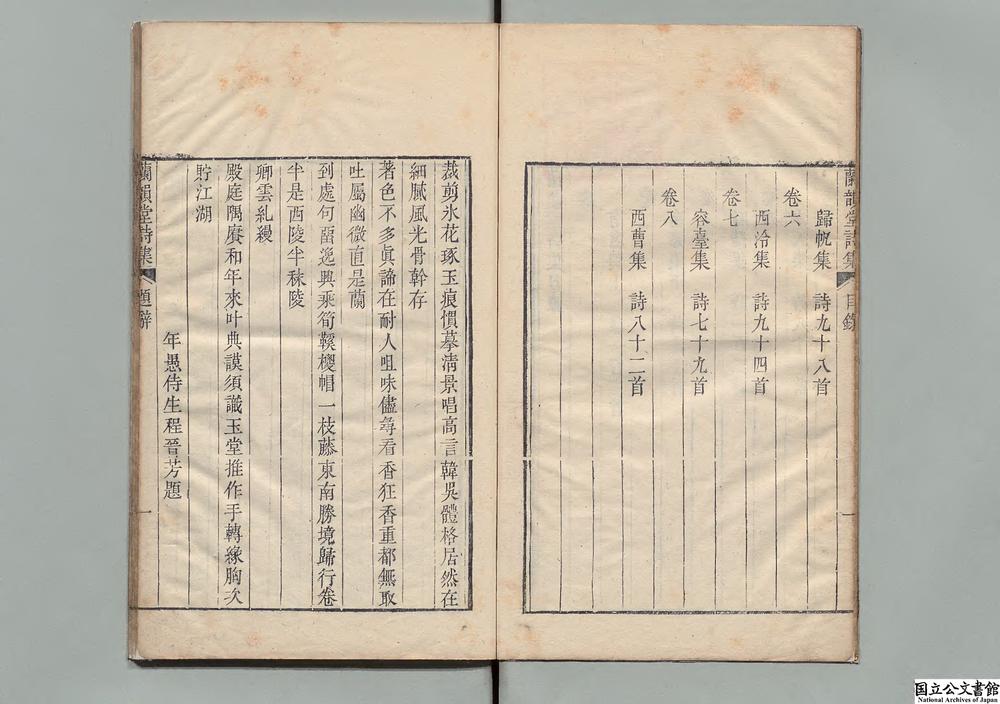 蘭韻堂詩集 目錄 一
歸帆集 詩九十八首
卷六
西泠集 詩九十四首
卷七
容臺集 詩七十九首
卷八
西曹集 詩八十二首
裁剪氷花琢玉痕慣摹淸景唱高言韓吳體格居然在
細膩風光骨幹存
著色不多眞諦在耐人咀味儘尋看香狂香重都無取
吐屬幽微直是蘭
到處句留逸興乘筍鞵椶帽一枝藤東南勝境歸行卷
半是西陵半秣陵
卿雲糺縵
殿庭隅賡和年來叶典謨須識玉堂推作手轉緣胸次
貯江湖
年愚侍生程晉芳題
蘭韻堂詩集 題辭 一
国立公文書館
National Archives of Japan